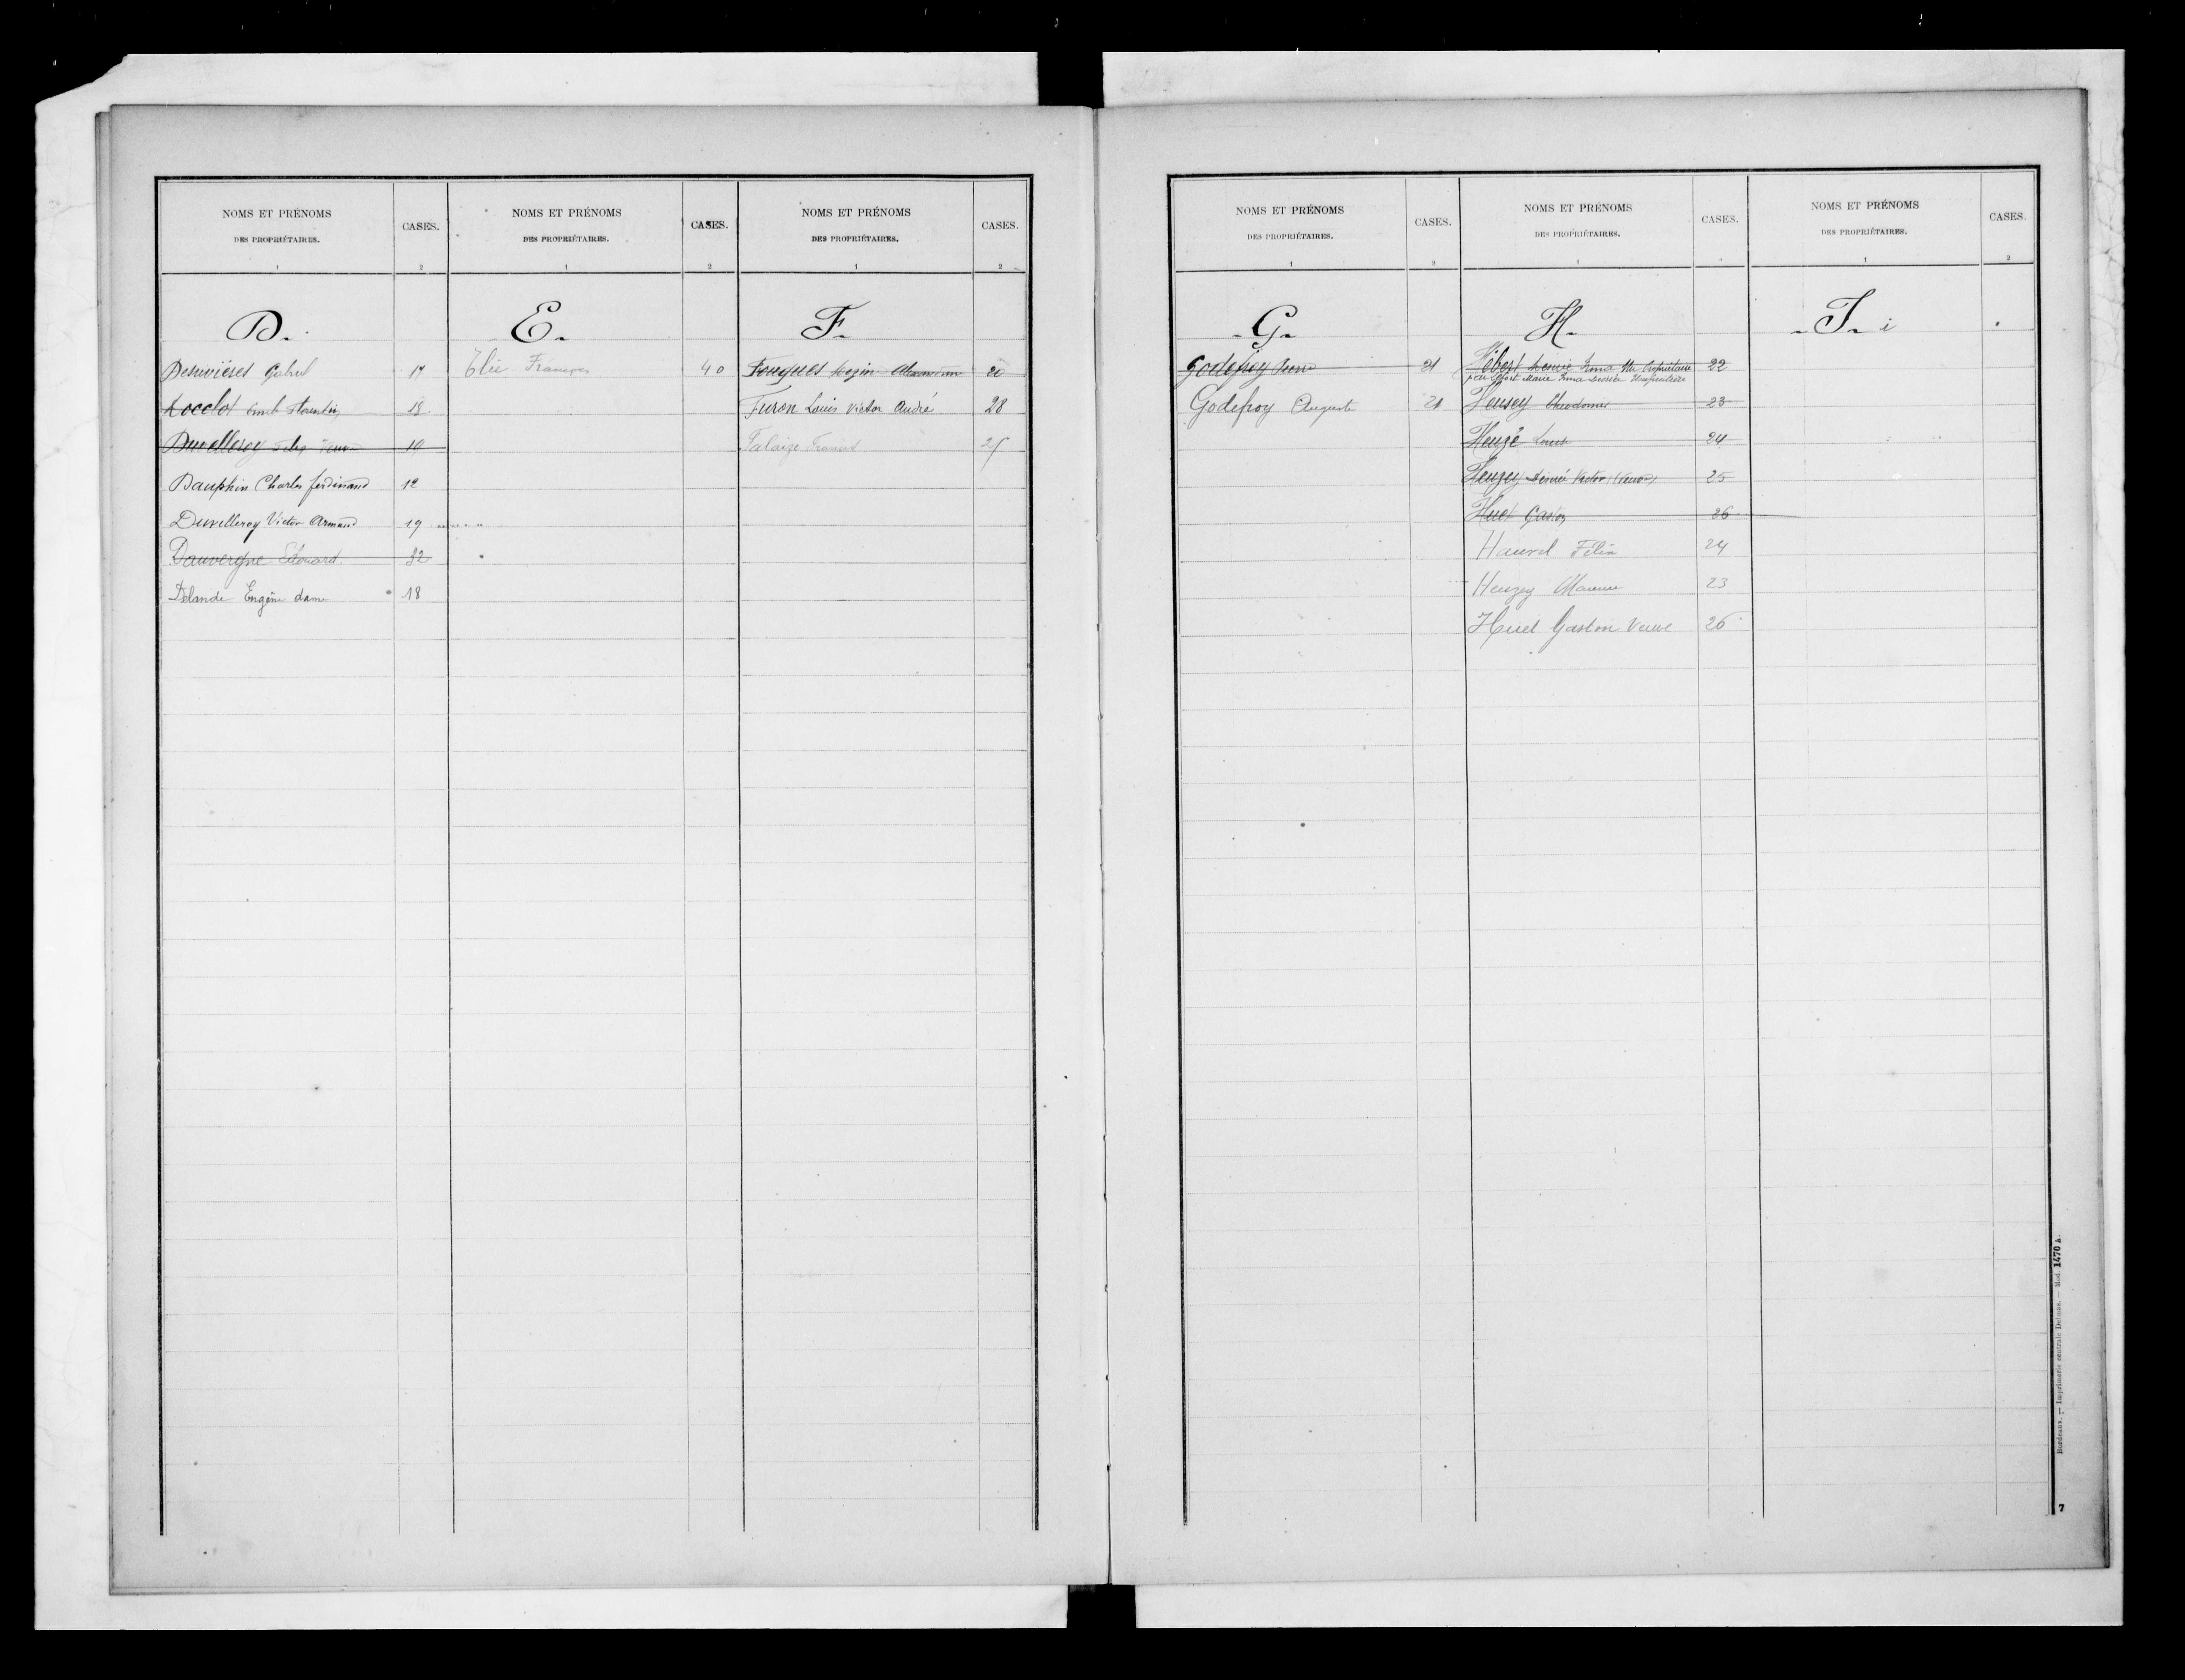 NOMS ET PRÉNOMS
DES PROPRIÉTAIRES.
1
CASES.
2
D.
Desuvières Gabriel 17
Docelot Emile Florentin 18
Duvelleroy Felix Veuve 19
Dauphin Charles ferdinand 12
Duvelleroy Victor Armand 19
Dauvergne Edouard 32
Delande Eugène dame 18
NOMS ET PRÉNOMS
DES PROPRIÉTAIRES.
1
CASES.
2
E.
Elie François 40
NOMS ET PRÉNOMS
DES PROPRIÉTAIRES.
1
CASES.
2
F.
Fouques 20
Furon Louis Victor André 28
Falaize Francis
NOMS ET PRÉNOMS
DES PROPRIÉTAIRES.
1
CASES.
2
G.
Godefroy Pierre 21
Godefroy Auguste 21
NOMS ET PRÉNOMS
DES PROPRIÉTAIRES.
1
CASES.
H.
Hébert Irma Nu Propriétaire 22
par Marie Irma Usufruitière
Heusey Théodomir 23
Heuzé Louis 24
Heuzey Désiré Victor (Veuve) 25
Huet Gaston 26
Haurel Félix 24
Heuzey Maurice 23
Huet Gaston Veuve 26
NOMS ET PRÉNOMS
DES PROPRIÉTAIRES.
1
CASES.
2
I. i
Bordeaux. — Imprimerie centrale Delmas. — Mod. 1470 A.
7